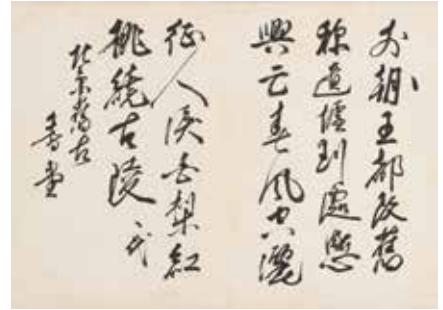 前朝王都改舊
稱遺墟到處
興亡春風空灑
征人淚白梨紅
桃繞古陵
北京懷古